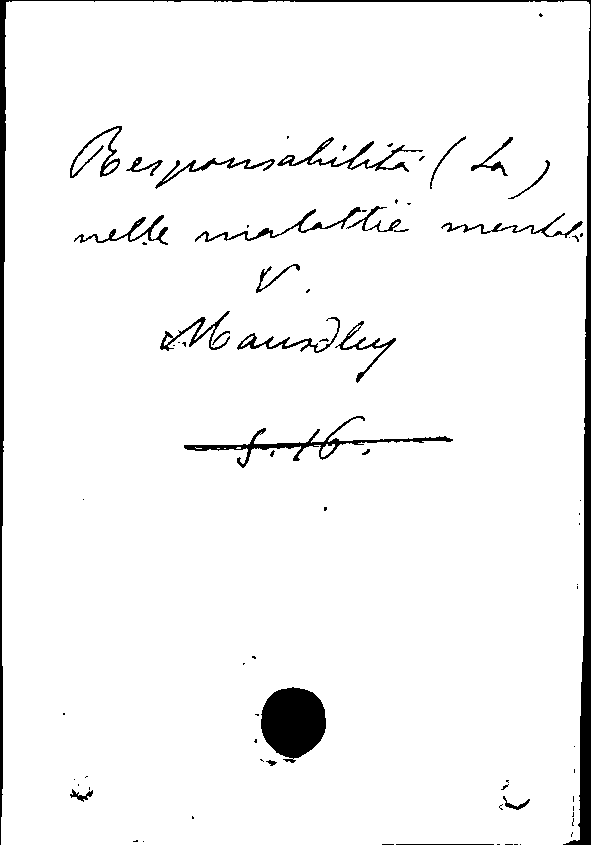 Responsabilità (La)
nelle malattie mentali
V.
Mausdley
S. 16.